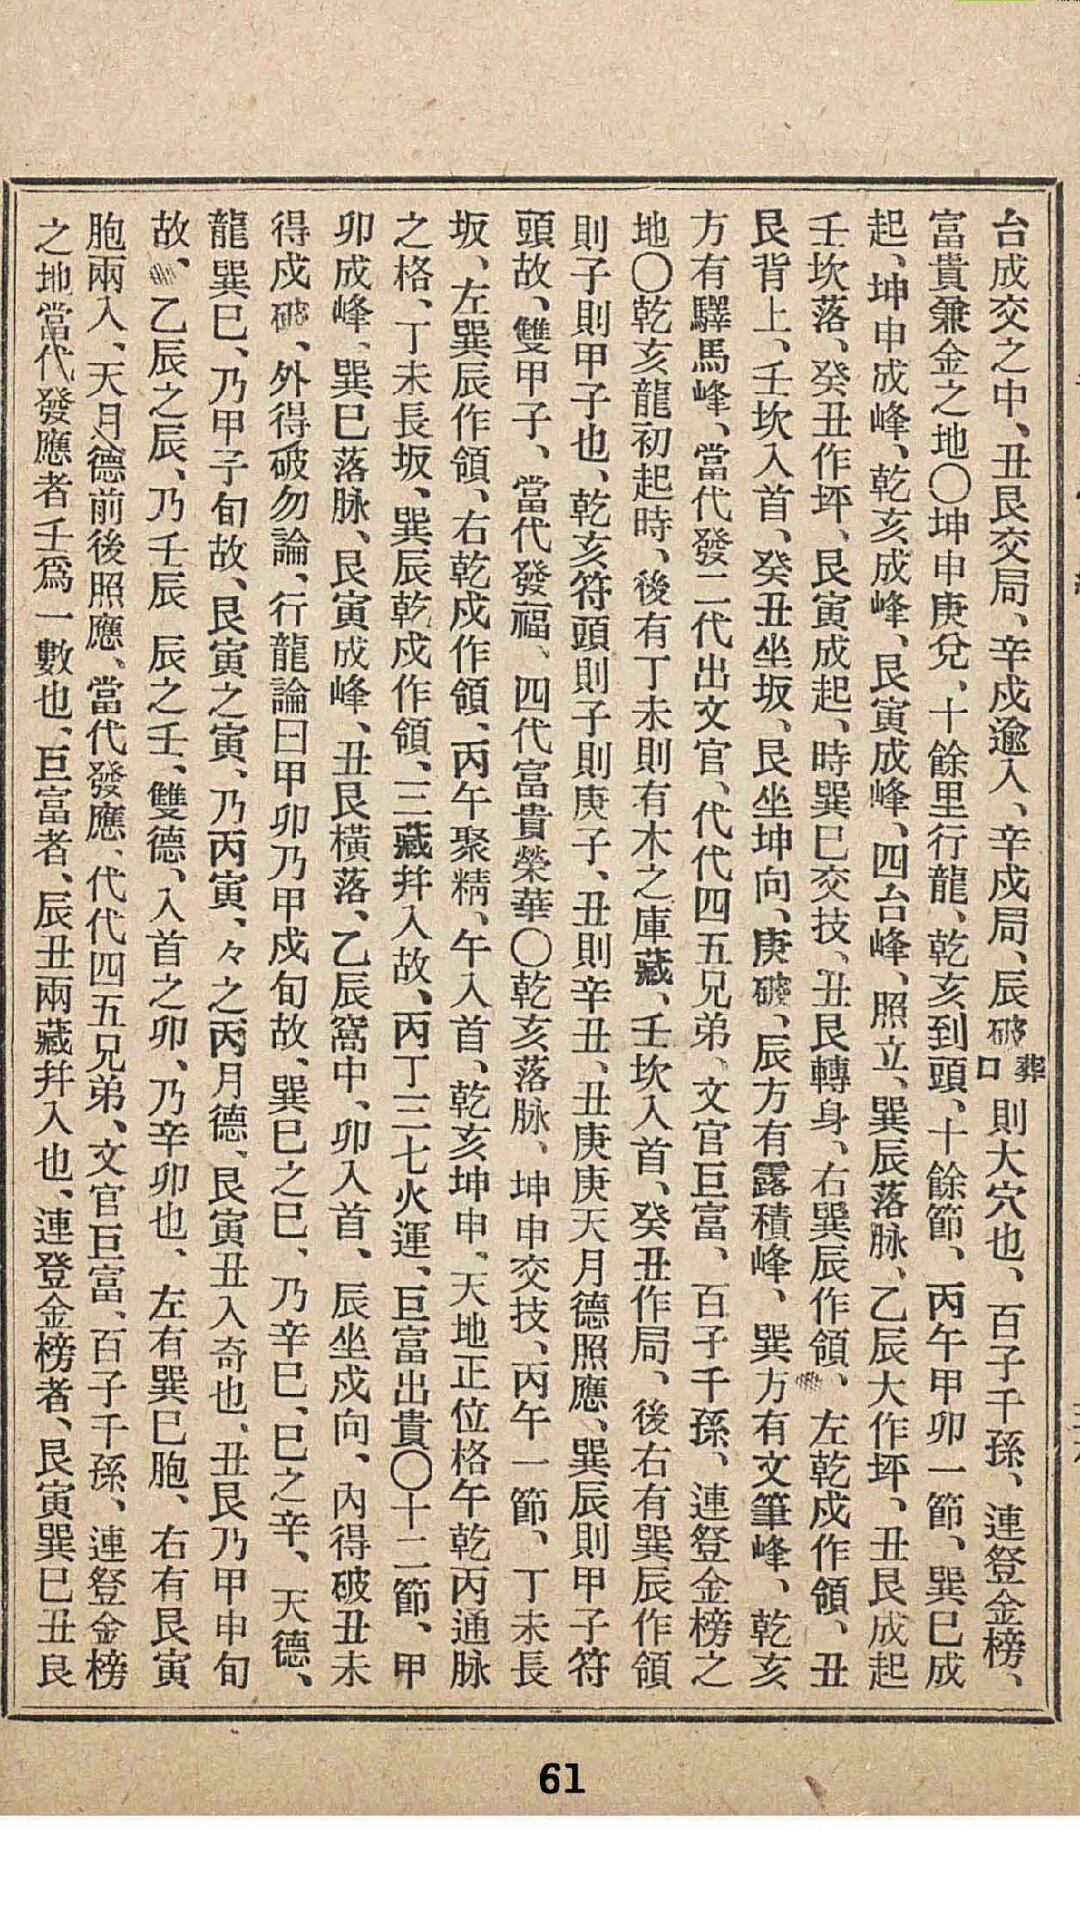 台成交之中、丑艮交局、辛戍逾入、辛戍局、辰破葬口則大穴也、百子千孫、連登金榜、
富貴兼金之地〇坤申庚兌、十餘里行龍、乾亥到頭、十餘節、丙午甲卯一節、巽巳成
起、坤申成峰、乾亥成峰、艮寅成峰、四台峰、照立、巽辰落脉、乙辰大作坪、丑艮成起
壬坎落、癸丑作坪、艮寅成起、時巽巳交技、丑艮轉身、右巽辰作領、左乾戍作領、丑
艮背上、壬坎入首、癸丑坐坂、艮坐坤向、庚破、辰方有露積峰、巽方有文筆峰、乾亥
方有驛馬峰、當代發二代出文官、代代四五兄弟、文官巨富、百子千孫、連登金榜之
地〇乾亥龍初起時、後有丁未則有木之庫藏、壬坎入首、癸丑作局、後右有巽辰作領
則子則甲子也、乾亥符頭則子則庚子、丑則辛丑、丑庚庚天月德照應、巽辰則甲子符
頭故、雙甲子、當代發福、四代富貴榮華〇乾亥落脉、坤申交技、丙午一節、丁未長
坂、左巽辰作領、右乾戍作領、丙午聚精、午入首、乾亥坤申、天地正位格午乾丙通脉
之格、丁未長坂、巽辰乾戍作領、三藏幷入故、丙丁三七火運、巨富出貴〇十二節、甲
卯成峰、巽巳落脉、艮寅成峰、丑艮橫落、乙辰窩中、卯入首、辰坐戍向、內得破丑未
得戍破、外得破勿論、行龍論曰甲卯乃甲戍旬故、巽巳之巳、乃辛巳、巳之辛、天德、
龍巽巳、乃甲子旬故、艮寅之寅、乃丙寅、々之丙月德、艮寅丑入奇也、丑艮乃甲申旬
故、乙辰之辰、乃壬辰 辰之壬、雙德、入首之卯、乃辛卯也、左有巽巳胞、右有艮寅
胞兩入、天月德前後照應、當代發應、代代四五兄弟、文官巨富、百子千孫、連登金榜
之地當代發應者壬爲一數也、巨富者、辰丑兩藏幷入也、連登金榜者、艮寅巽巳丑艮
61